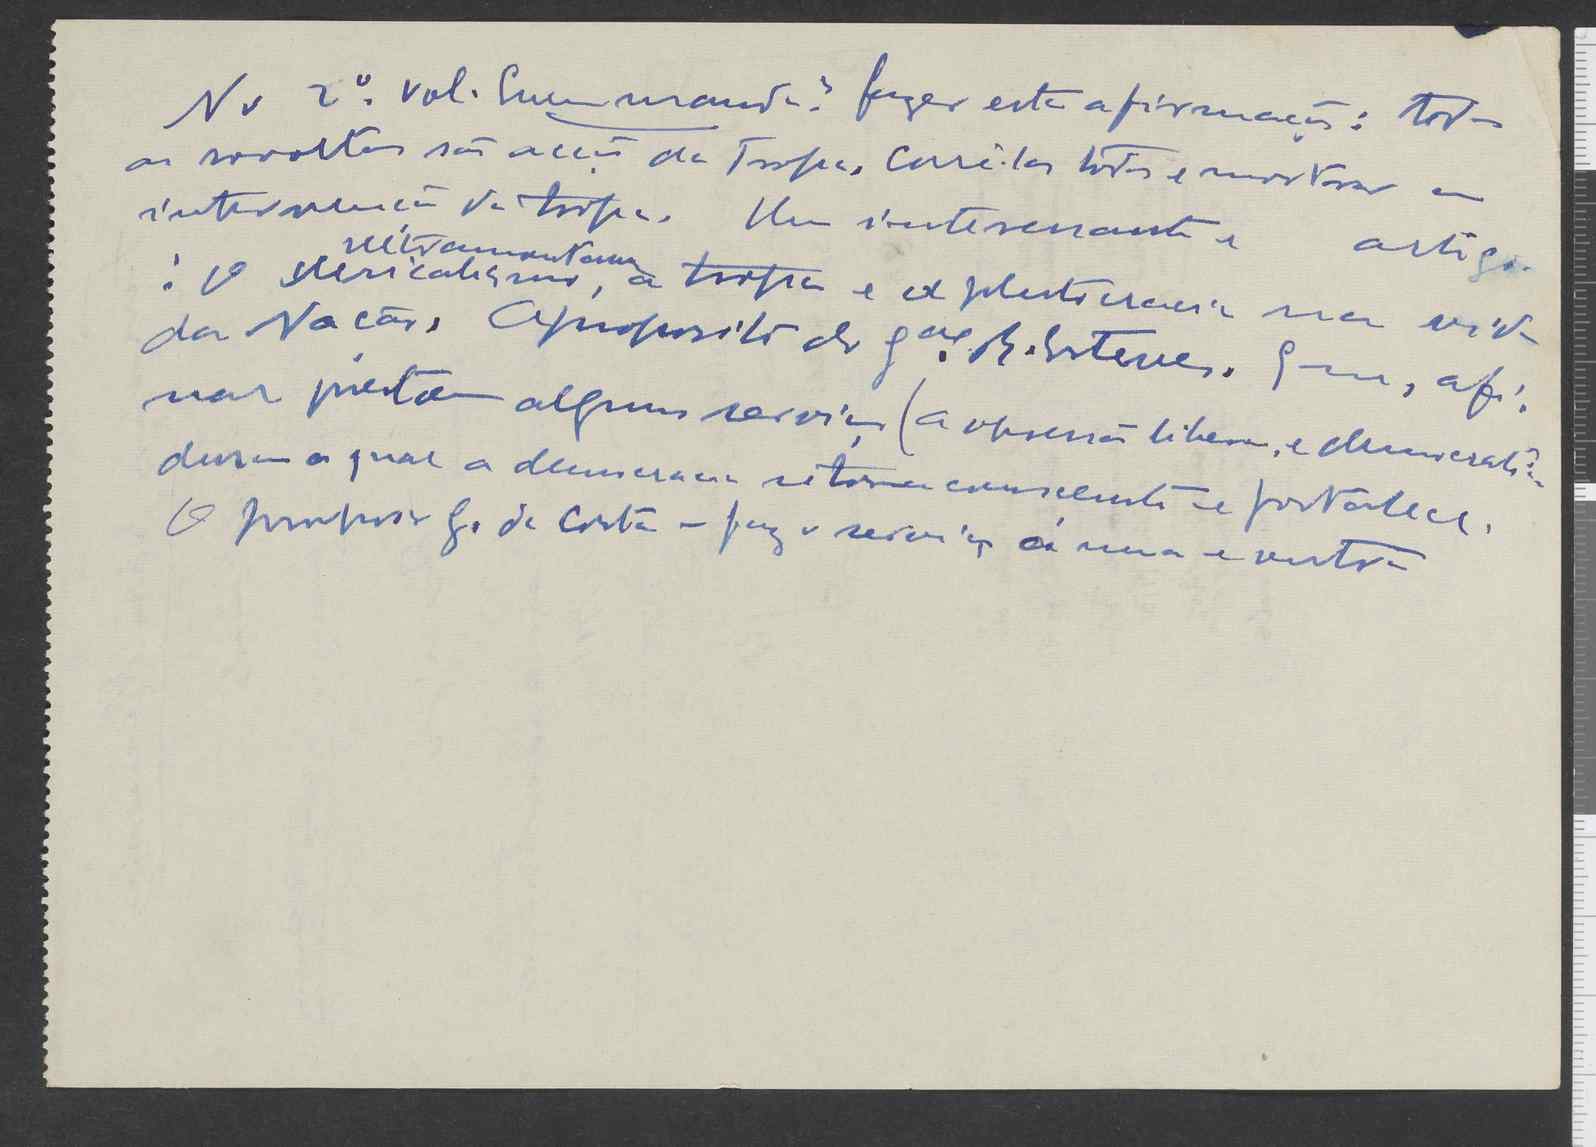 No 2º. vol. fazer esta afirmação: todas
as revoltas são acção da Tropa. Cori-las todas e mostrar a
intervenção da tropa. Um interessante artigo
ultramontano
: O clericalismo, a tropa e a plutocracia na vida
da Nação. A proposito do gal. R. Esteves. Quem, afi-
nal prestam algum serviço (a opressão liberal e democratica
durante a qual a democracia se torna consciente e fortalece.
O proprio G. da Costa — faz o serviço